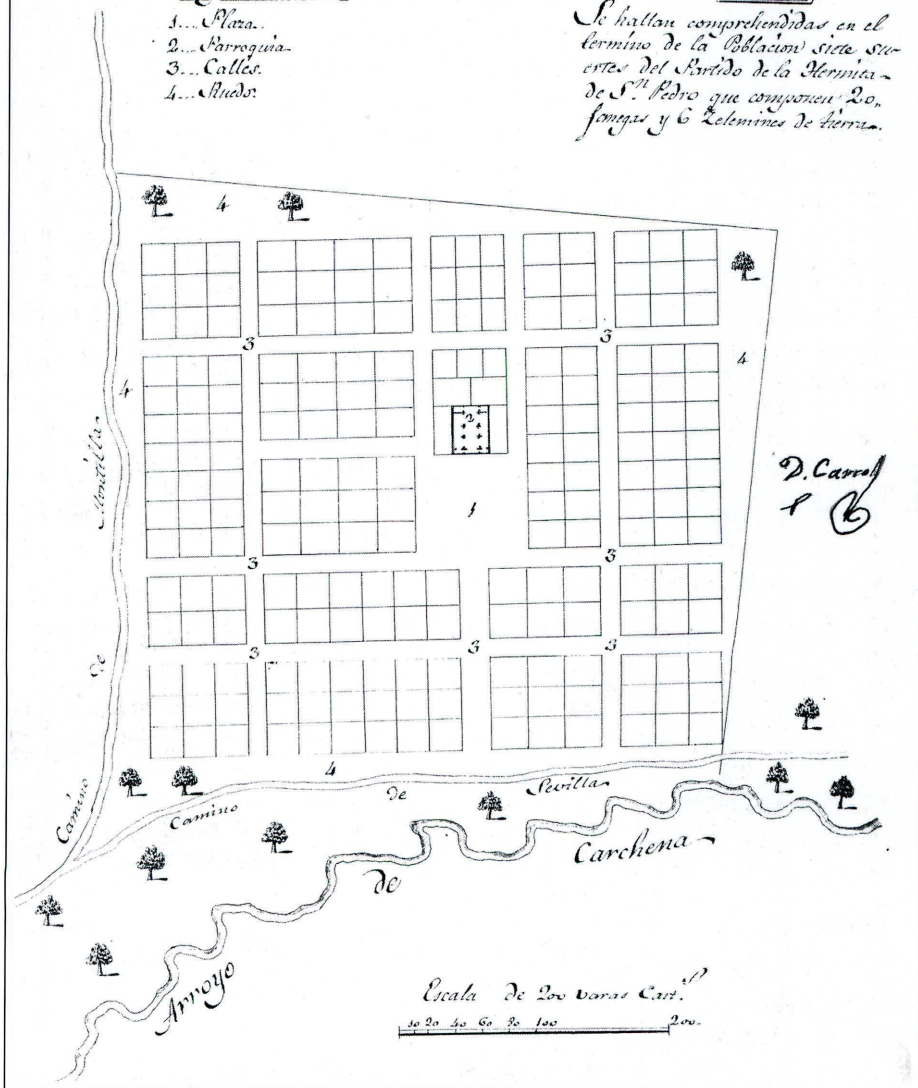 1... Plaza.
2... Parroquia
3... Calles.
4... Ruedo.
Se hallan comprehendidas en el
termino de la Poblacion siete su-
ertes del Partido de la Hermita
de S.n Pedro que componen 20,,
fanegas y 6 Zelemines de tierra.
4
4
3
3
4
4
2
1
3
3
3
3
3
4
Camino de Montilla
Camino de Sevilla
Arroyo de Carchena
Escala de 200 varas Cast.s
10 20 40 60 80 100 200.